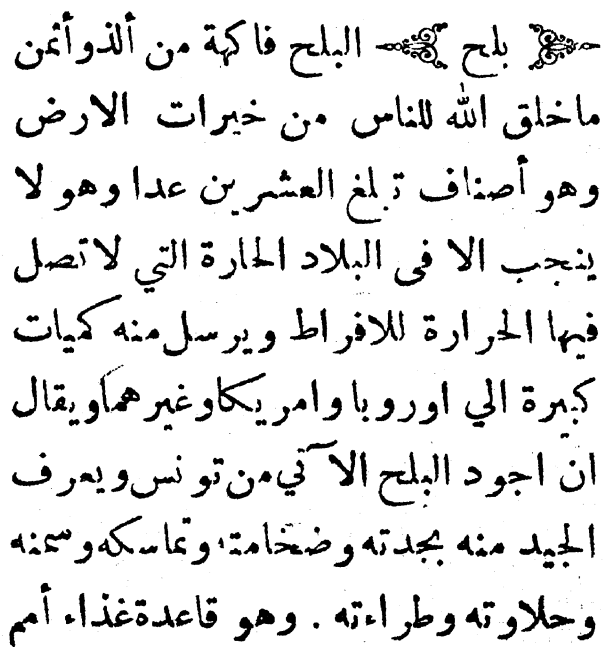 بلح البلح فاكهة من ألذ وأثمن
ما خلق الله للناس من خيرات الارض
وهو أصناف تبلغ العشرين عدا وهو لا
ينجب الا فى البلاد الحارة التي لا تصل
فيها الحرارة للافراط ويرسل منه كميات
كبيرة الي اوروبا وامريكا وغيرهما ويقال
ان اجود البلح الآتي من تونس ويعرف
الجيد منه بجدته وضخامته وتماسكه وسمنه
وحلاوته وطراءته . وهو قاعدة غذاء أمم